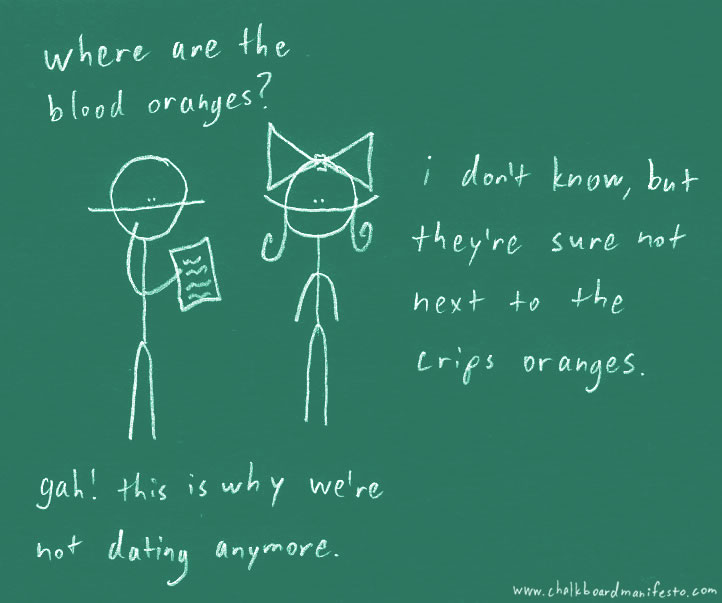 where are the
blood oranges?
i don't know, but
they're sure not
next to the
crips oranges.
gah! this is why we're
not dating anymore.
www.chalkboardmanifesto.com